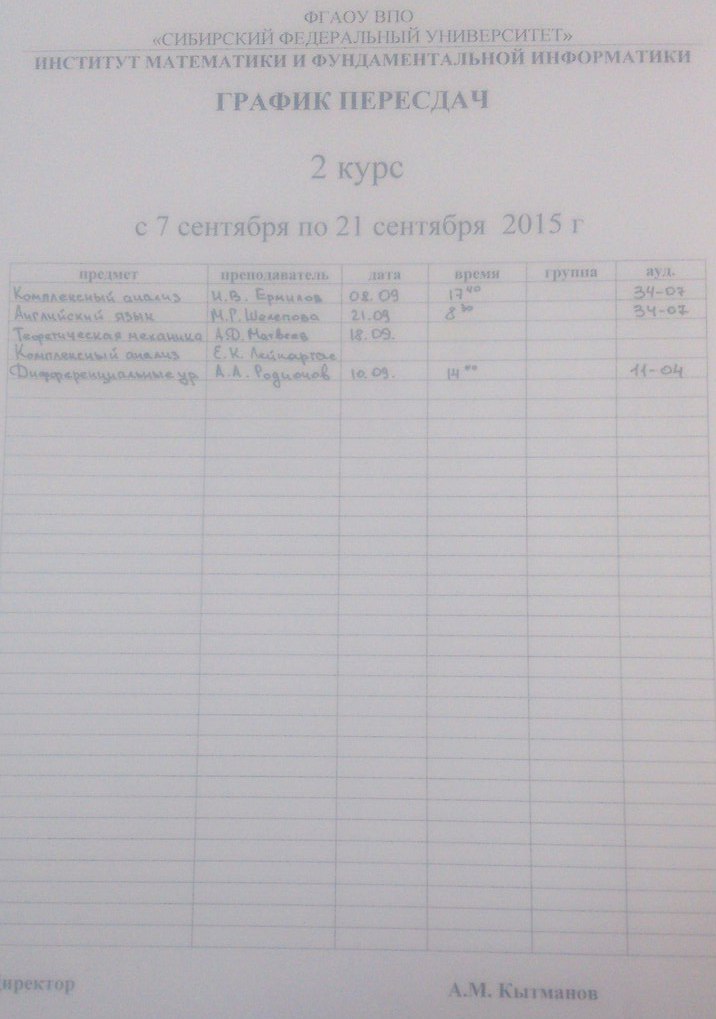 ФГАОУ ВПО
«СИБИРСКИЙ ФЕДЕРАЛЬНЫЙ УНИВЕРСИТЕТ»
ИНСТИТУТ МАТЕМАТИКИ И ФУНДАМЕНТАЛЬНОЙ ИНФОРМАТИКИ
ГРАФИК ПЕРЕСДАЧ
2 курс
с 7 сентября по 21 сентября 2015 г
предмет преподаватель дата время группа ауд.
Комплексный анализ И.В. Ермилов 08.09 17⁰⁰ 34-07
Английский язык М.Р. Шелепова 21.09 8³⁰ 34-07
Теоретическая механика А.Д. Матвеев 18.09.
Комплексный анализ Е.К. Лейнартас
Дифференциальные ур А.А. Родионов 10.09. 14⁰⁰ 11-04
Директор А.М. Кытманов